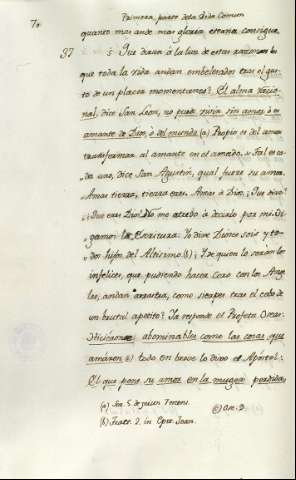 74
Primera parte de la Vida Comun
quanto mas ande mas gloria eterna consigue.
37 ¿Que diran à la luz de estas razones los
que toda la vida andan embelezados tras el gus-
to de un placer momentaneo? El alma racio-
nal, dice San Leon, no puede vivir sin amor, ò es
amante de Dios, ò del mundo. (a) Propio es del amor
transformar al amante en el amado. Tal es ca-
da uno, dice San Agustin, qual fuere su amor.
Amas tierra, tierra eres. Amas à Dios. ¿Que diré?
¿Que eres Dios? No me atrebo à decirlo por mi. Oi-
gamos la Escritura: Yo dixe Dioses sois y to-
dos hijos del Altisimo. (b) ¿Y de quien la
infelices, que pudiendo hacer Coro con los Ange-
les, andan arrastra, como sierpes tras el cebo de
un brutal apetito? Ya responde el Profeta Oseas:
Hicieronse abominables como las cosas que
amaron. (c) todo en breve lo dixo el Apostol:
El que pone su amor en la muger perdida,
(a) Ser. 5 de jejun
(b) Tract. 2. in Epis. Joan.
(c) Os. 9.